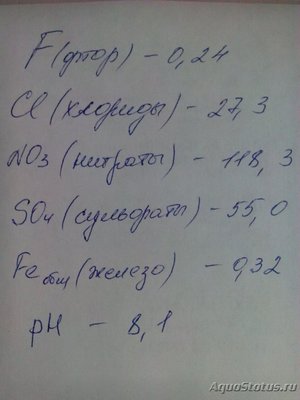 F (фтор) - 0,24
Cl (хлориды) - 27,3
NO3 (нитраты) - 118,3
SO4 (сульфаты) - 55,0
Fe общ (железо) - 0,32
pH - 8,1
AquaStatus.ru